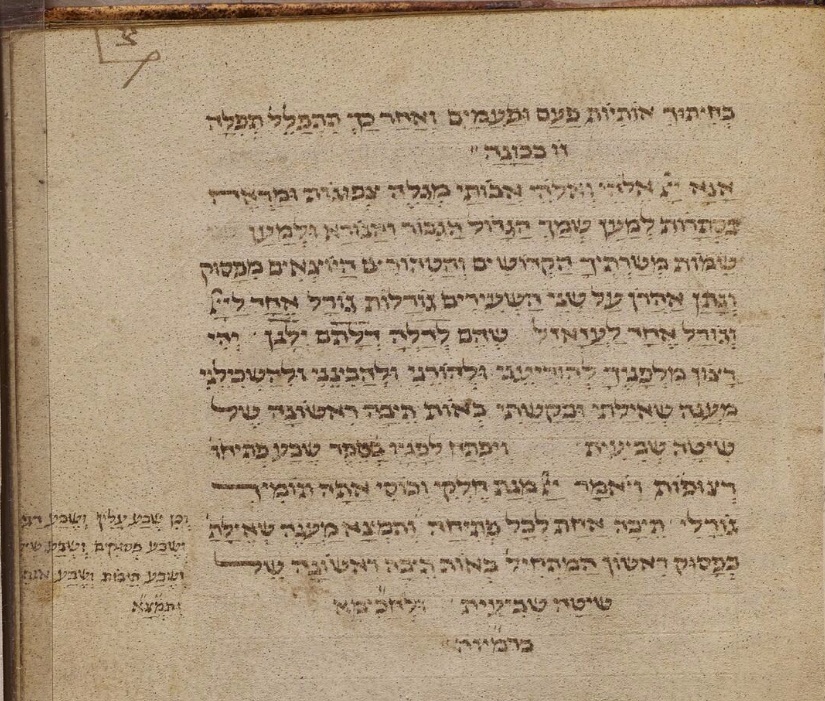 בחיתוך אותיות פעם ופעמים ואחר כך תתפלל תפלה
זו בכונה
אנא יי אלהי ואלהי אבותי מגלה צפונות ומראה
בסתרות למען שמך הגדול הגבור והנורא ולמען
שמות משרתיך הקדושים והטהורים היוצאים מפסוק
ונתן אהרן על שני השעירים גורלות גורל אחד ליי
וגורל אחד לעזאזל שהם לדלה דלתם ולבן יהי
רצון מלפניך להודיעני ולהורני ולהבינני ולהשכילני
מענה שאילתי ובקשתי באות תיבה ראשונה של
שיטה שביעית ויפתח לפניו בספר שבע פתיחו
רצופות ויאמר יי מנת חלקי וכוסי אתה תומיך
גורלי תיבה אחת לכל פתיחה ותמצא מענה שאילת
בפסוק ראשון המתחיל באות תיבה ראשונה של
שיטה שביעית ולחכימא
ברמיזה
וכן שבע עלין ושבע
ושבע פסוקים ושבע
ושבע תיבות ושבע
ותמצא